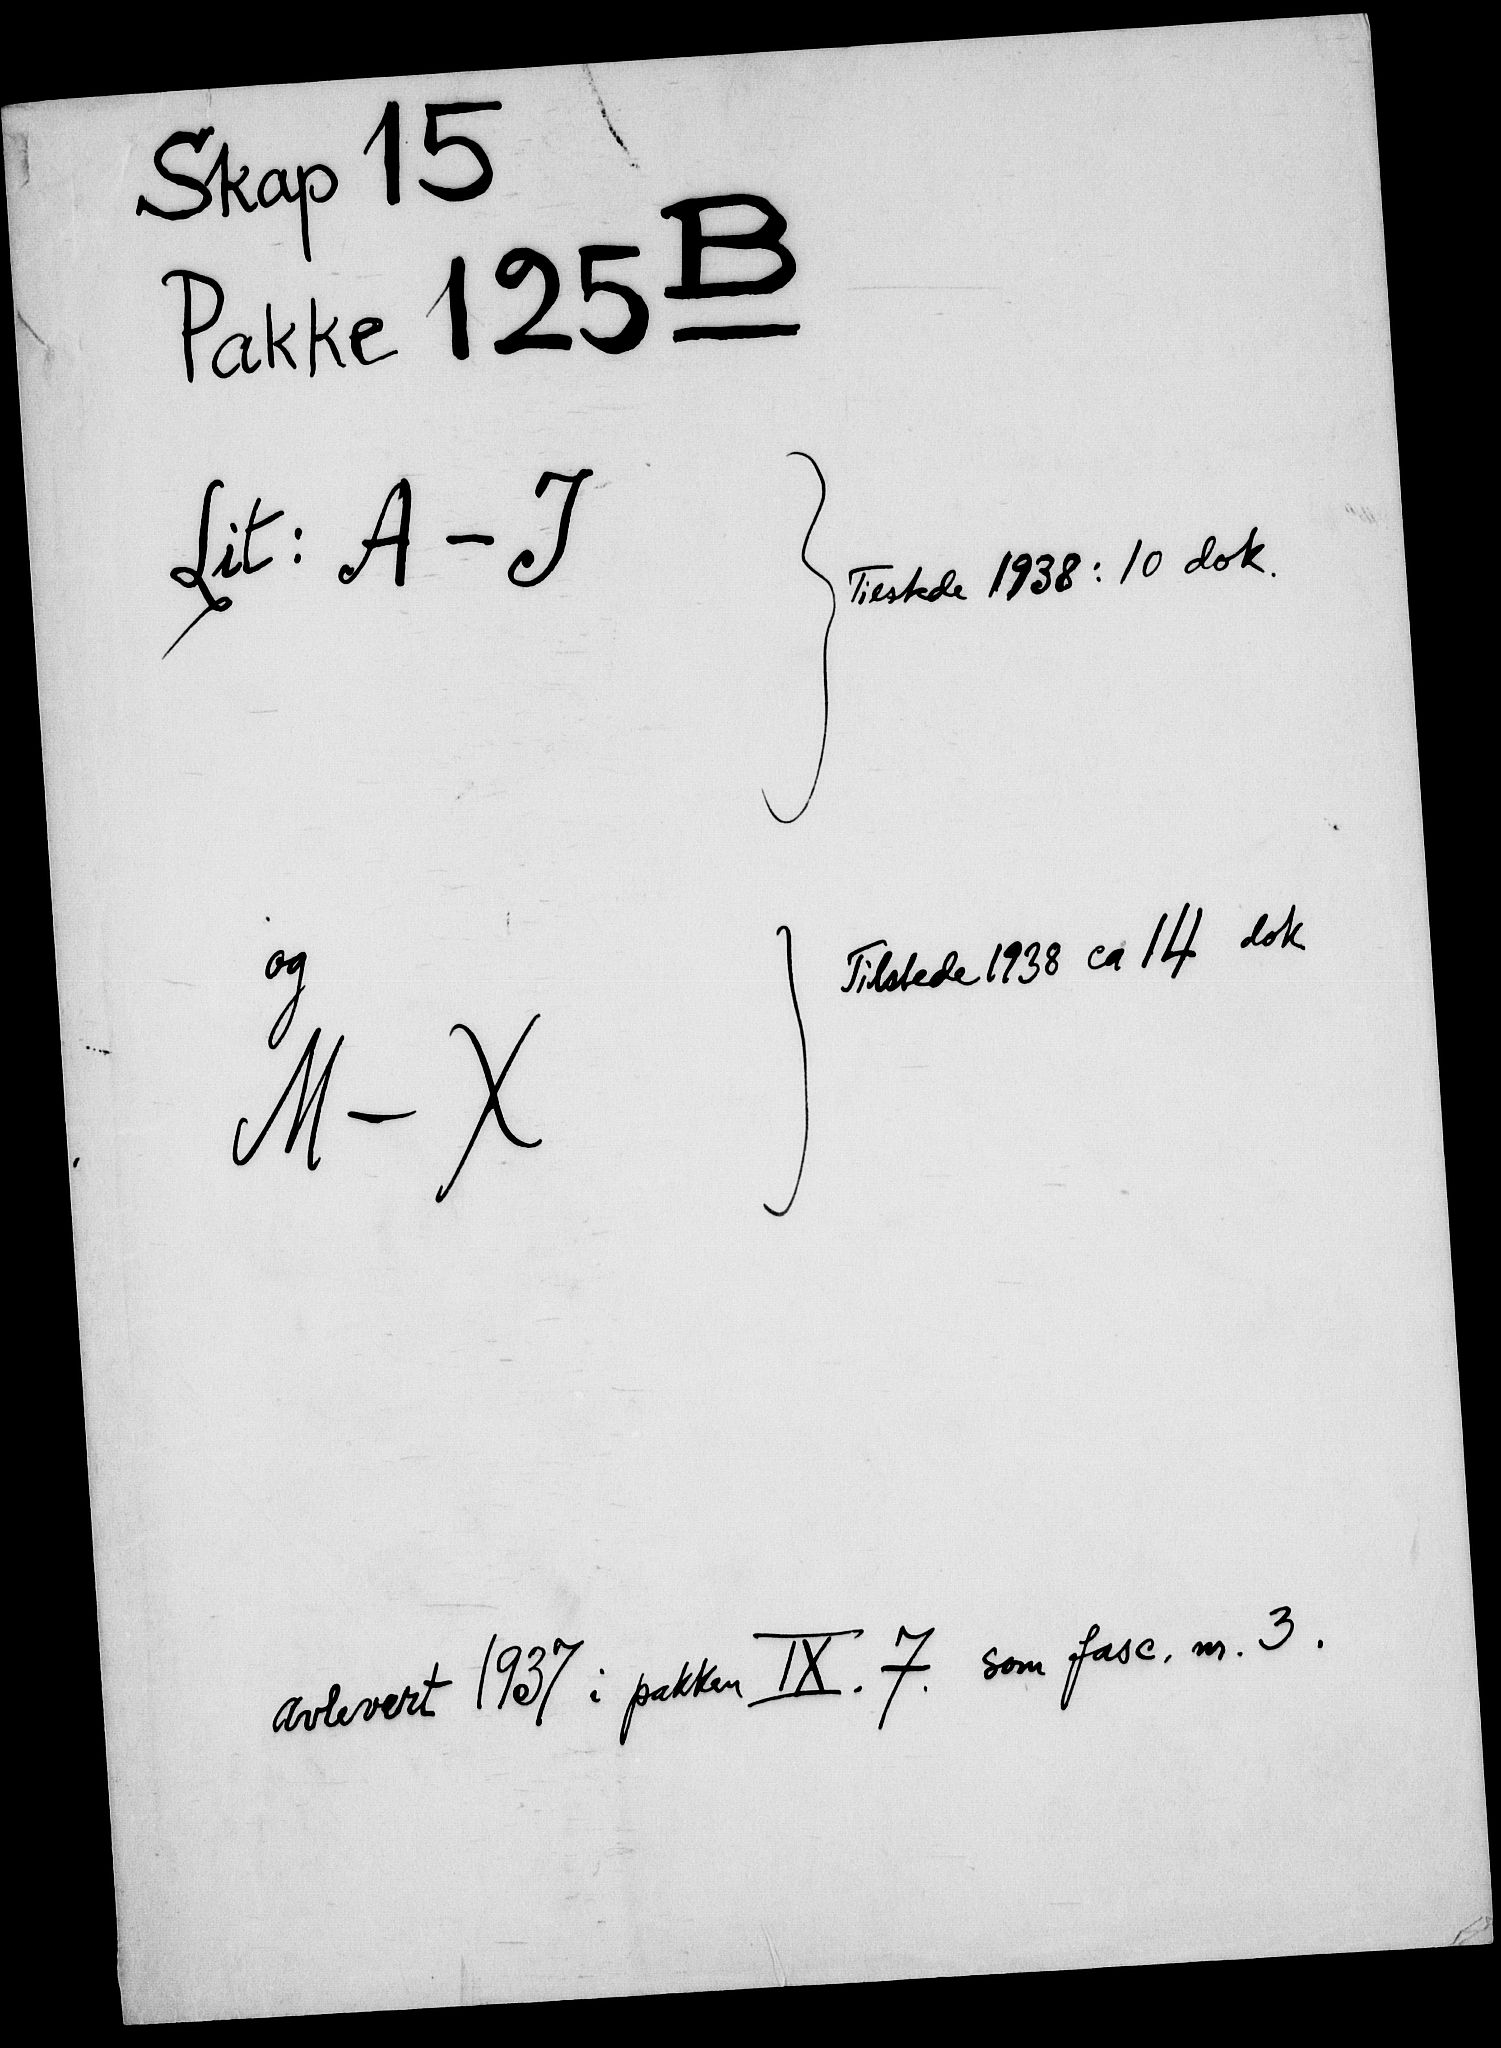 Skap 15
Pakke 125 B
Lit: A - J
Tilstede 1938: 10 dok.
og
M - X
Tilstede 1938 ca 14 dok
avlevert 1937 i pakken IX. 7. som fasc. nr. 3.